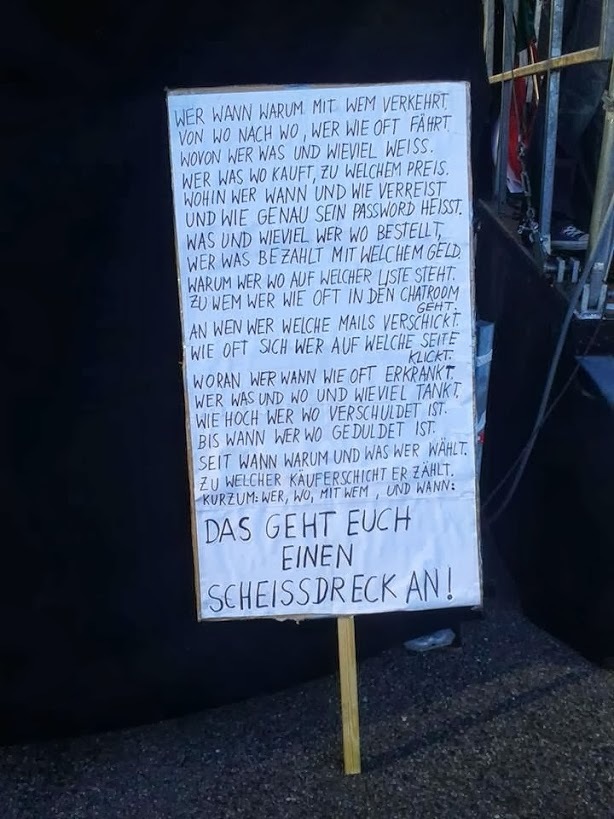 WER WANN WARUM MIT WEM VERKEHRT.
VON WO NACH WO, WER WIE OFT FÄHRT.
WOVON WER WAS UND WIEVIEL WEISS.
WER WAS WO KAUFT, ZU WELCHEM PREIS.
WOHIN WER WANN UND WIE VERREIST
UND WIE GENAU SEIN PASSWORD HEISST.
WAS UND WIEVIEL WER WO BESTELLT,
WER WAS BEZAHLT MIT WELCHEM GELD,
WARUM WER WO AUF WELCHER LISTE STEHT.
ZU WEM WER WIE OFT IN DEN CHATROOM
GEHT.
AN WEN WER WELCHE MAILS VERSCHICKT.
WIE OFT SICH WER AUF WELCHE SEITE
KLICKT.
WORAN WER WANN WIE OFT ERKRANKT.
WER WAS UND WO UND WIEVIEL TANKT.
WIE HOCH WER WO VERSCHULDET IST.
BIS WANN WER WO GEDULDET IST.
SEIT WANN WARUM UND WAS WER WÄHLT.
ZU WELCHER KÄUFERSCHICHT ER ZÄHLT.
KURZUM: WER, WO, MIT WEM, UND WANN:
DAS GEHT EUCH
EINEN
SCHEISSDRECK AN!